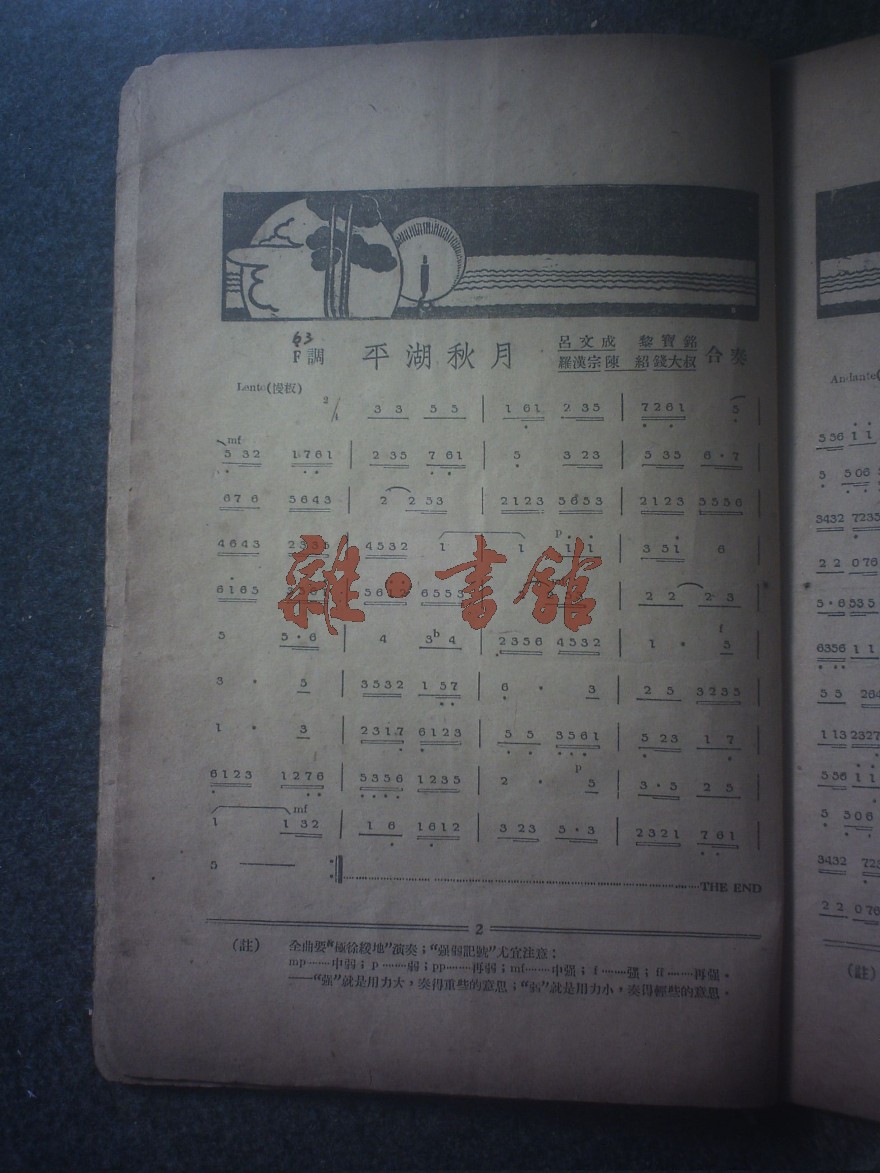 63
F調 平湖秋月 呂文成 黎寶銘
羅漢宗 陳紹 錢大叔 合奏
Lento(慢板)
2/ 3 3 5 5 | 1 61 2 35 | 7261 5 |
mf
5 32 1761 | 2 35 7 61 | 5 3 23 | 5 35 6·7
67 6 5643 | 2 2 53 | 2123 5653 | 2123 5556
p
4643 | 4532 1 1 1 1 | 3 51 6
6165 | 6553 | 2 2 2·3
f
5 5·6 | 4 3b 4 | 2356 4532 | 1 · 5
3 · 5 | 3532 1 57 | 6 · 3 | 2 5 3235
1 · 3 | 2317 6123 | 5 5 3561 | 5 23 1 7
p
6123 1276 | 5356 1235 | 2 · 5 | 3·5 2 5
mf
1 1 32 | 1 6 1612 | 3 23 5·3 | 2321 7 61
5 —— THE END
2
(註) 全曲要“極徐緩地”演奏；“強弱記號”尤宜注意：
mp……中弱；p……弱；pp……再弱；mf……中強；f……強；ff……再強。
——“強”就是用力大，奏得重些的意思；“弱”就是用力小，奏得輕些的意思。
雜·書館
Andante(
556 1 1
5 506
3432 7235
2 2 076
5·6535
6356 1 1
5 5 264
1 13 2327
556 1 1
5 506
3432 723
2 2 076
(註)